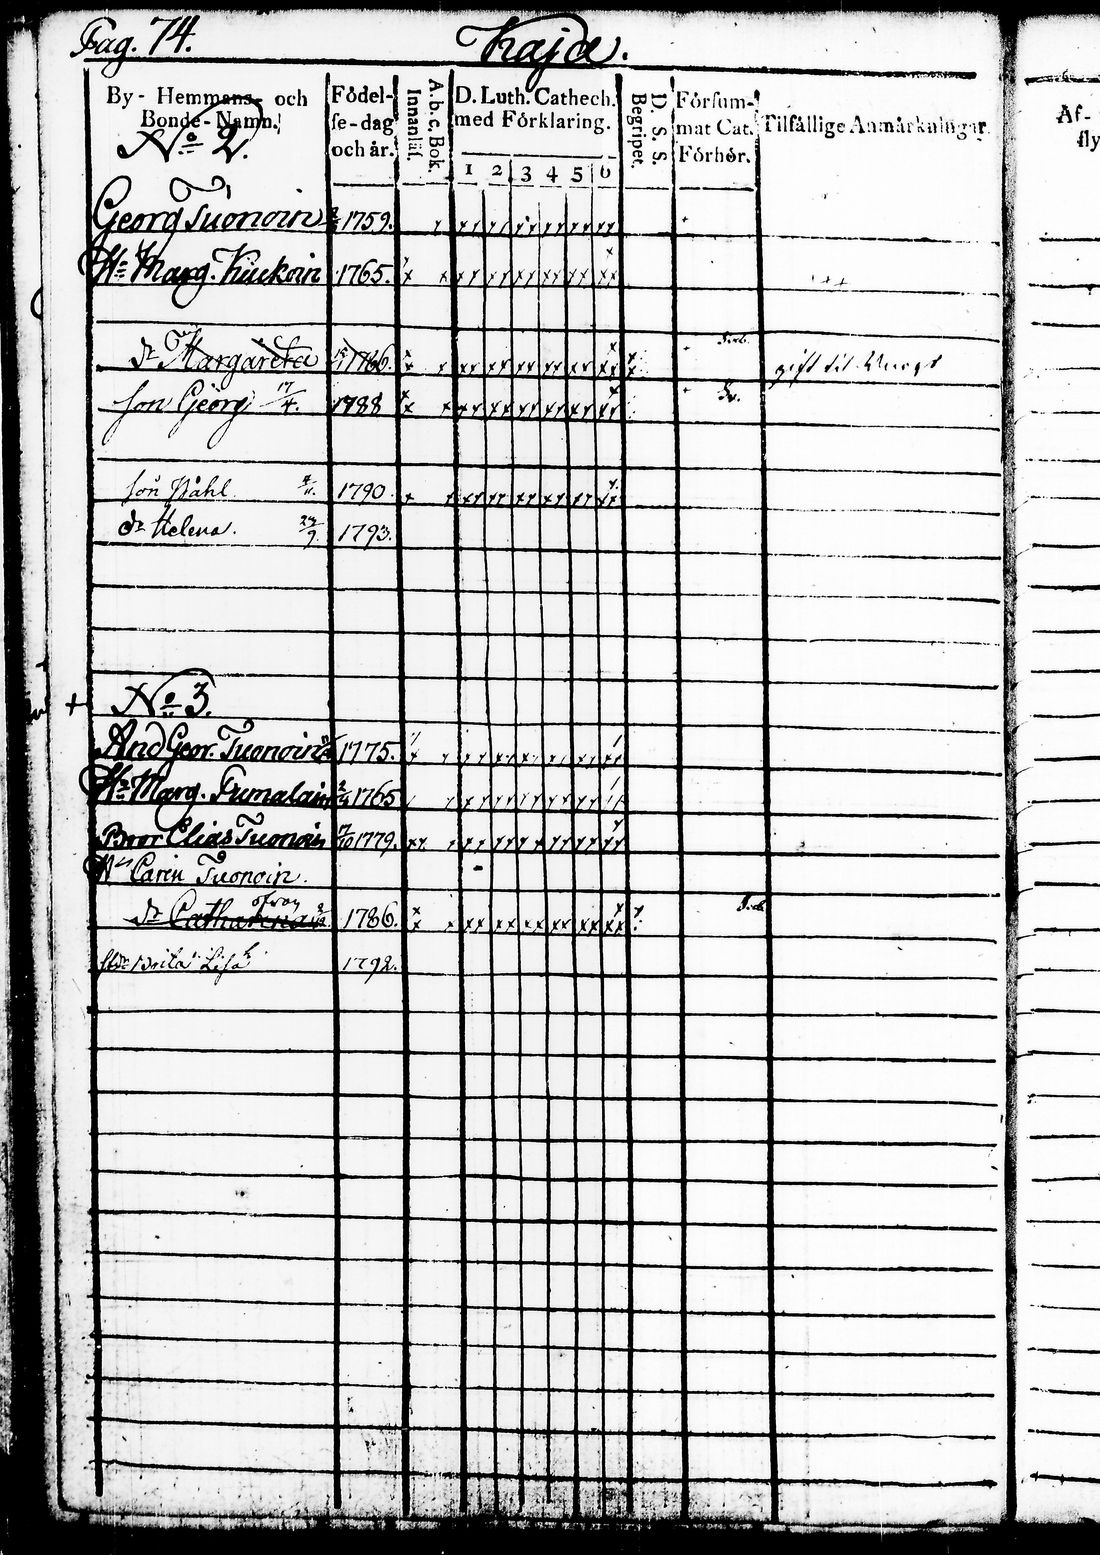 Pag. 74. Kaja.
By- Hemmans- och Bonde-Namn.
Födel-se-dag och år.
Innanläs.
A. b. c. Bok.
D. Luth. Cathech. med Förklaring.
1 2 3 4 5 6
D. S. S. Begripet.
Försum-mat Cat. Förhör.
Tilfällige Anmärkningar.
Af-
fly
No 2.
Georg Tuonoin 1759.
Hu Marg. Kuckoin 1765.
dr Margareta 1766.
gift til
son Georg 17/4. 1788
son Påhl 1790
dr Helena. 1793.
No 3.
And Geor. Tuonoin 1775.
Hu Marg. 1765
Bror Elias Tuonoin 1779.
Hu Carin Tuonoin.
dr Catharina 1786.
Brita Lisa 1792.